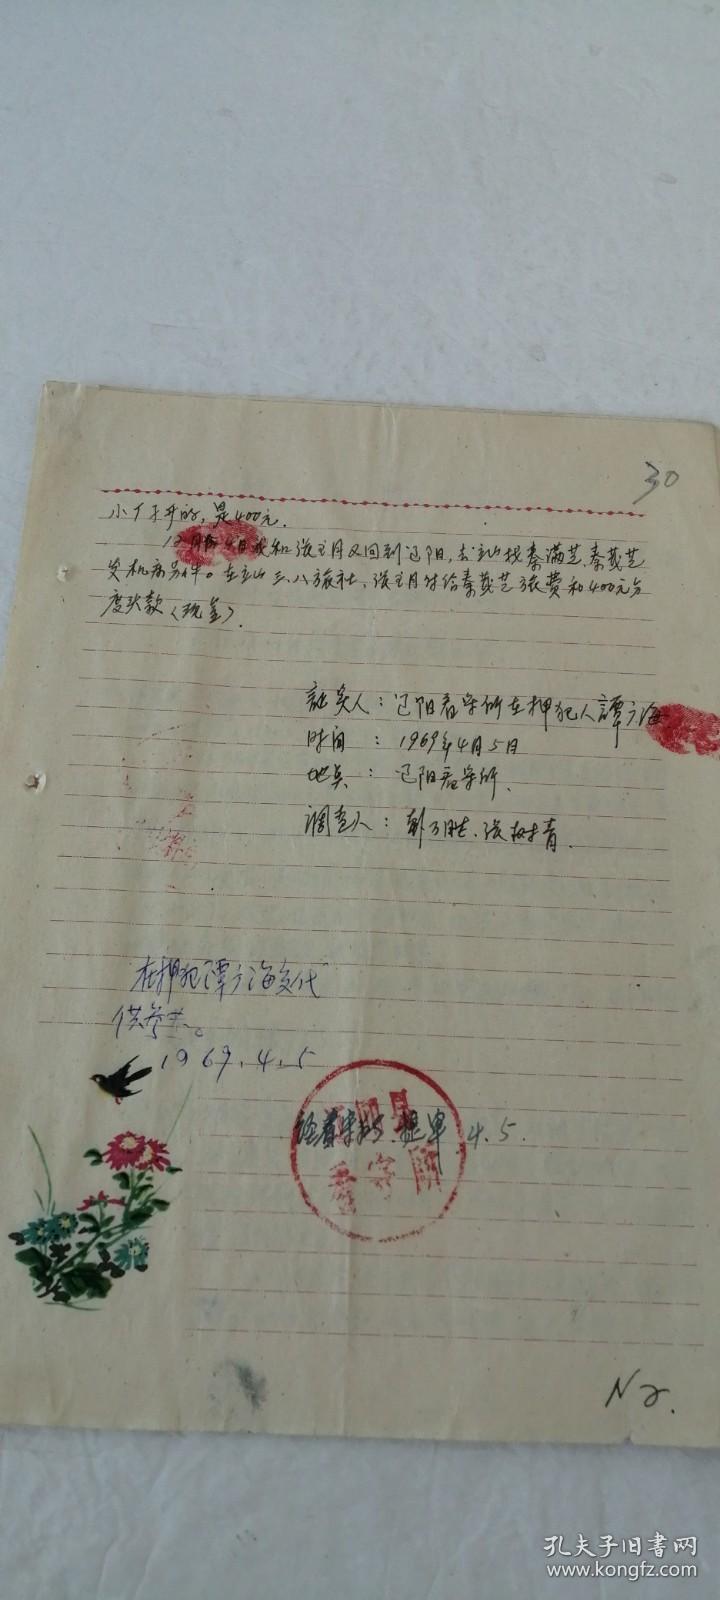 30
小丁开的,是400元.
12月4日我和张主月又回到辽阳,去立山找秦满芝、秦茂芝
在立山三八旅社,张主月付给秦茂芝旅费和400元
款(现金).
証实人:辽阳看守所在押犯人譚广海
时间:1969年4月5日
地点:辽阳看守所.
调查人:韩万胜、张树青.
在押犯谭广海交代
供参考。
1969.4.5
4.5.
看守所
N2.
孔夫子旧书网
www.kongfz.com